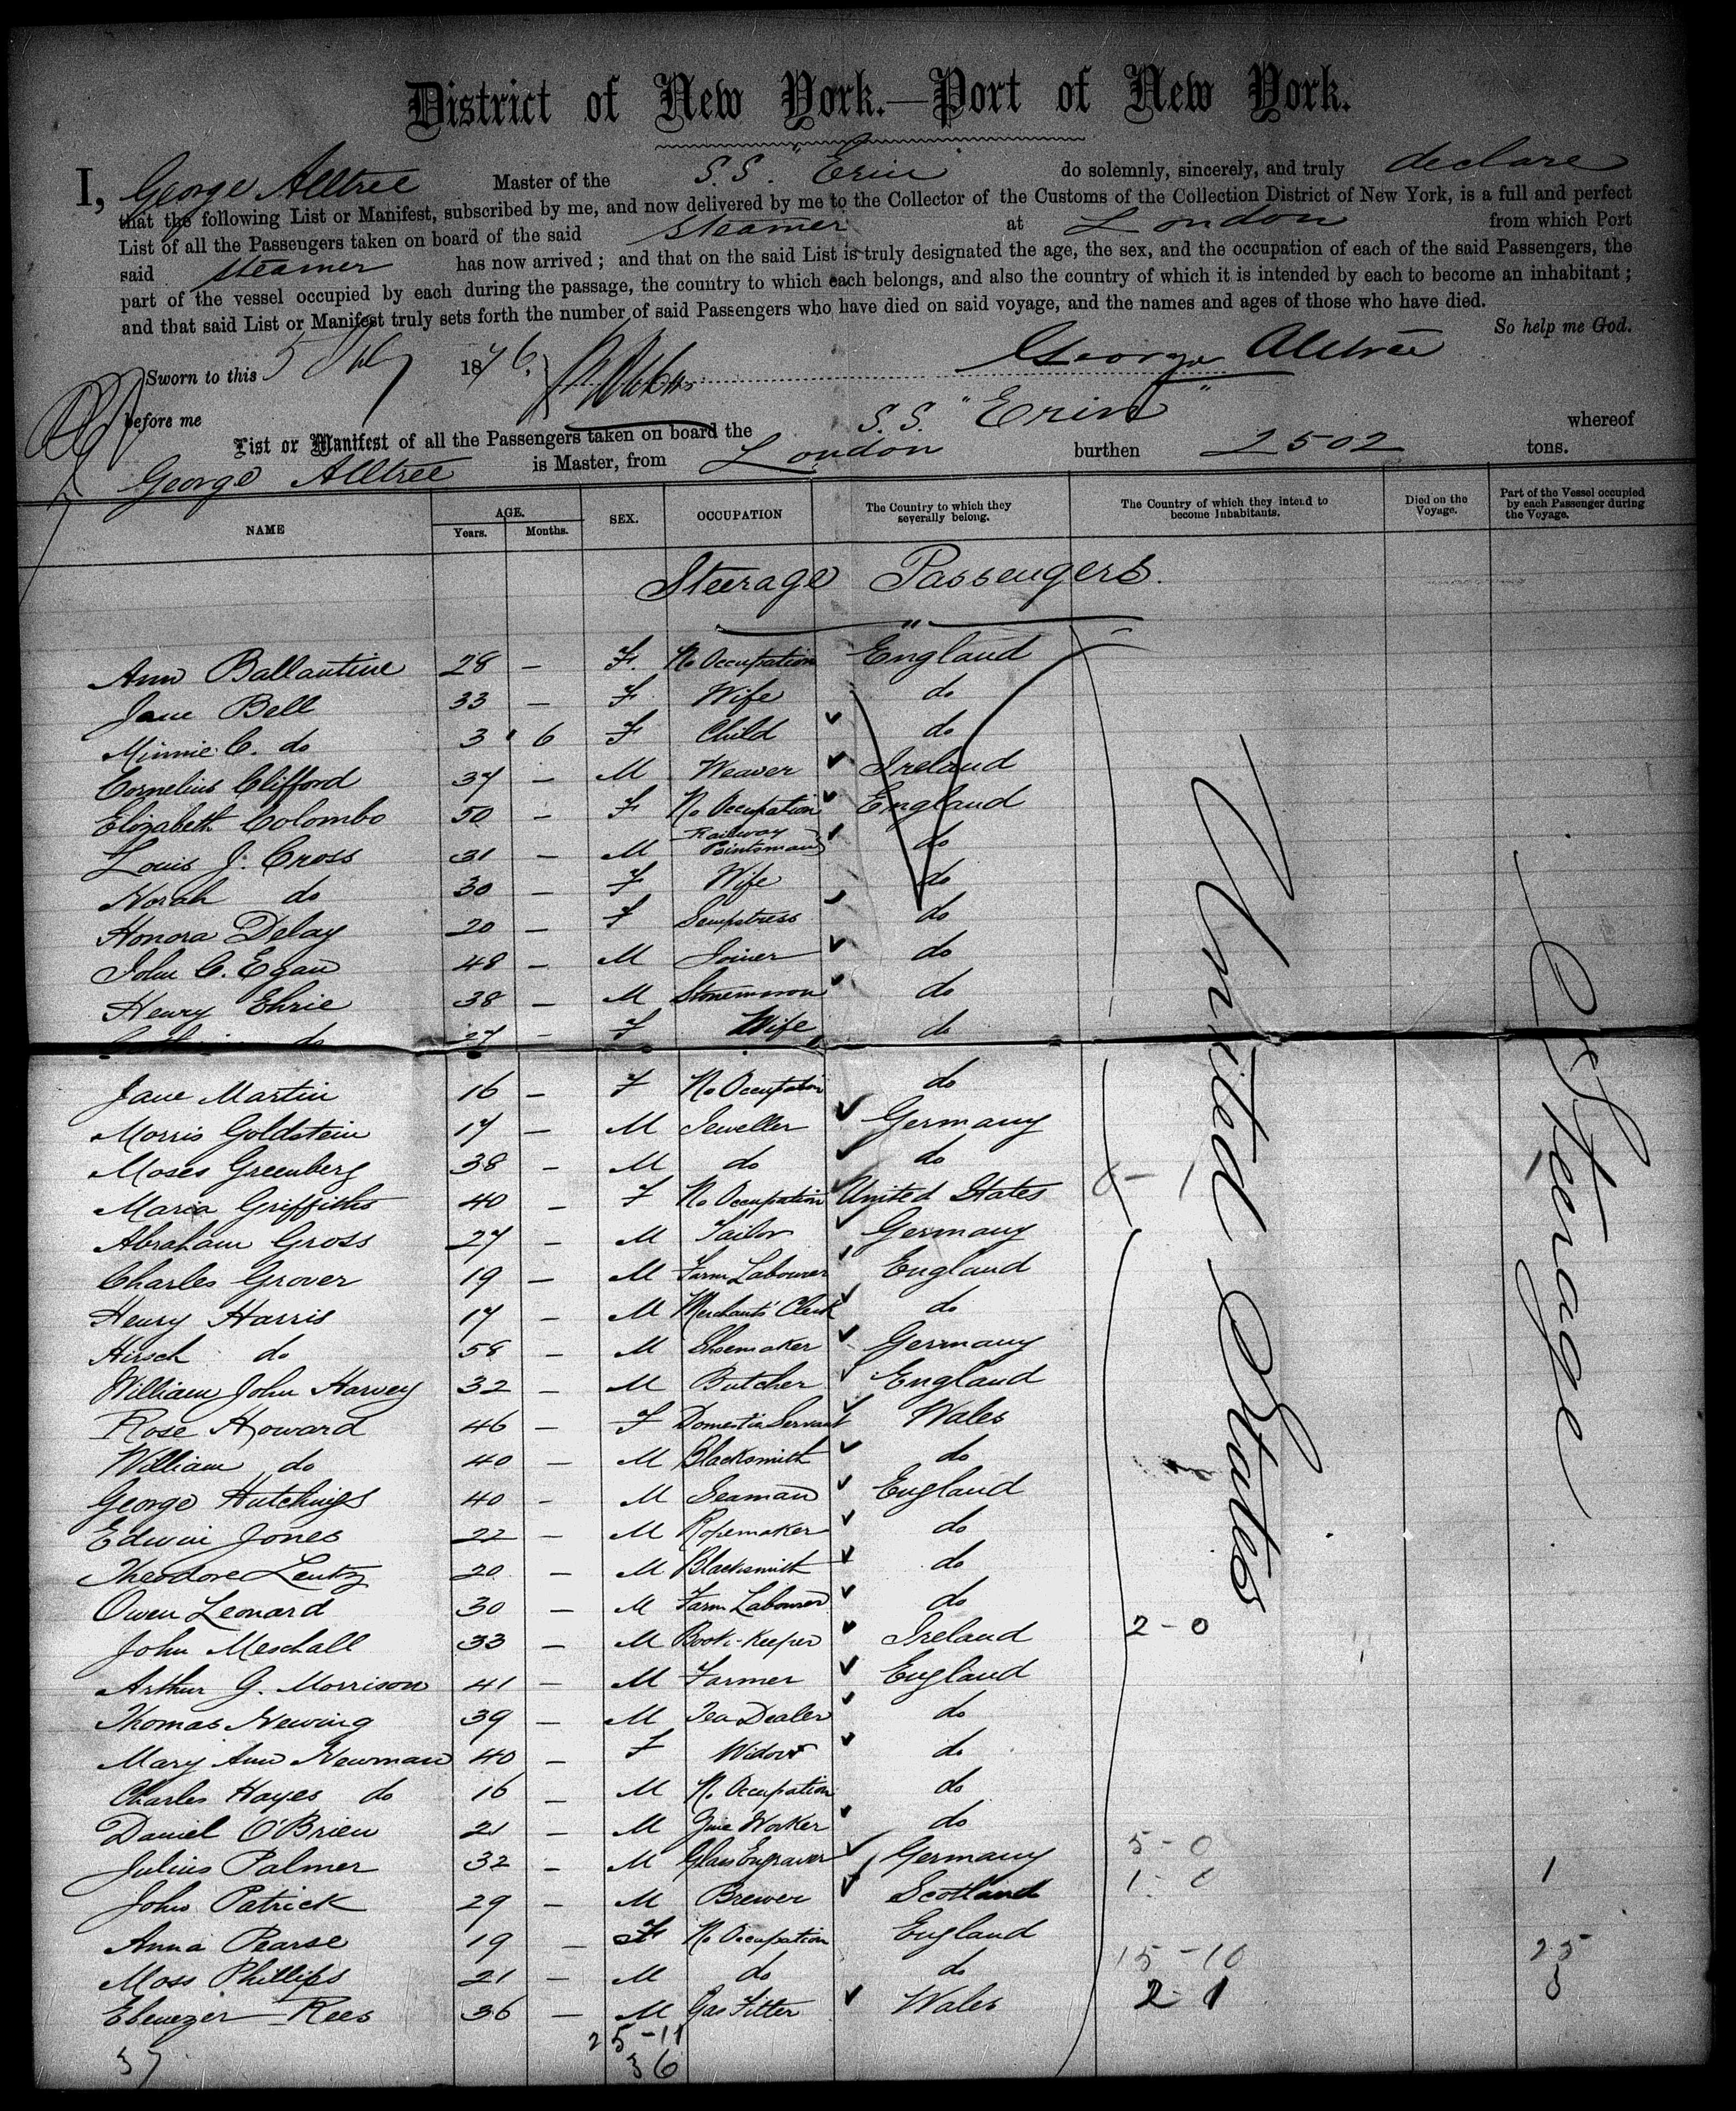 District of New York.—Port of New York.
I, George Alltree Master of the S.S. "Erin" do solemnly, sincerely, and truly declare
that the following List or Manifest, subscribed by me, and now delivered by me to the Collector of the Customs of the Collection District of New York, is a full and perfect
List of all the Passengers taken on board of the said steamer at London from which Port
said steamer has now arrived; and that on the said List is truly designated the age, the sex, and the occupation of each of the said Passengers, the
part of the vessel occupied by each during the passage, the country to which each belongs, and also the country of which it is intended by each to become an inhabitant;
and that said List or Manifest truly sets forth the number of said Passengers who have died on said voyage, and the names and ages of those who have died.
So help me God.
Sworn to this 5 1876. George Alltree
before me
List or Manifest of all the Passengers taken on board the S.S. "Erin" whereof
George Alltree is Master, from London burthen 2502 tons.
NAME AGE. Years. Months. SEX. OCCUPATION The Country to which they severally belong. The Country of which they intend to become Inhabitants. Died on the Voyage. Part of the Vessel occupied by each Passenger during the Voyage.
Steerage Passengers.
Ann Ballantine 28 — F. No Occupation England
Jane Bell 33 — F Wife do
Minnie C. do 3 6 F Child do
Cornelius Clifford 37 — M Weaver Ireland
Elizabeth Colombo 50 — F No Occupation England
Louis J. Cross 31 — M Railway Pointsman do
Norah do 30 — F Wife do
Honora Delay 20 — F Sempstress do
John C. Egan 48 — M Joiner do
Henry Ehrie 38 — M Stonemason do
do 27 — F Wife do
Jane Martin 16 — F No Occupation do
Morris Goldstein 17 — M Jeweller Germany
Moses Greenberg 38 — M do do
Maria Griffiths 40 — F No Occupation United States
Abraham Gross 27 — M Tailor Germany
Charles Grover 19 — M Farm Labourer England
Henry Harris 17 — M Merchants' Clerk do
Hirsch do 58 — M Shoemaker Germany
William John Harvey 32 — M Butcher England
Rose Howard 46 — F Domestic Servant Wales
William do 40 — M Blacksmith do
George Hutchings 40 — M Seaman England
Edwin Jones 22 — M Ropemaker do
Theodore Leutz 20 — M Blacksmith do
Owen Leonard 30 — M Farm Labourer do
John Meschall 33 — M Book-Keeper Ireland 2-0
Arthur G. Morrison 41 — M Farmer England
Thomas Newing 39 — M Tea Dealer do
Mary Ann Newman 40 — F Widow do
Charles Hayes do 16 — M No Occupation do
Daniel O'Brien 21 — M Zinc Worker do
Julius Palmer 32 — M Glass Engraver Germany 5-0
John Patrick 29 — M Brewer Scotland 1
Anna Pearse 19 — F No Occupation England
Moss Phillips 21 — M do do 15-10 25
Ebenezer Rees 36 — M Gas Fitter Wales 2-1 8
37 25-11
36
United States
Aft Steerage